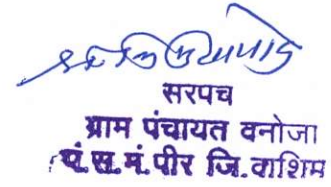 सरपच
ग्राम पंचायत वनोजा
पं.स.मं.पीर जि.वाशिम